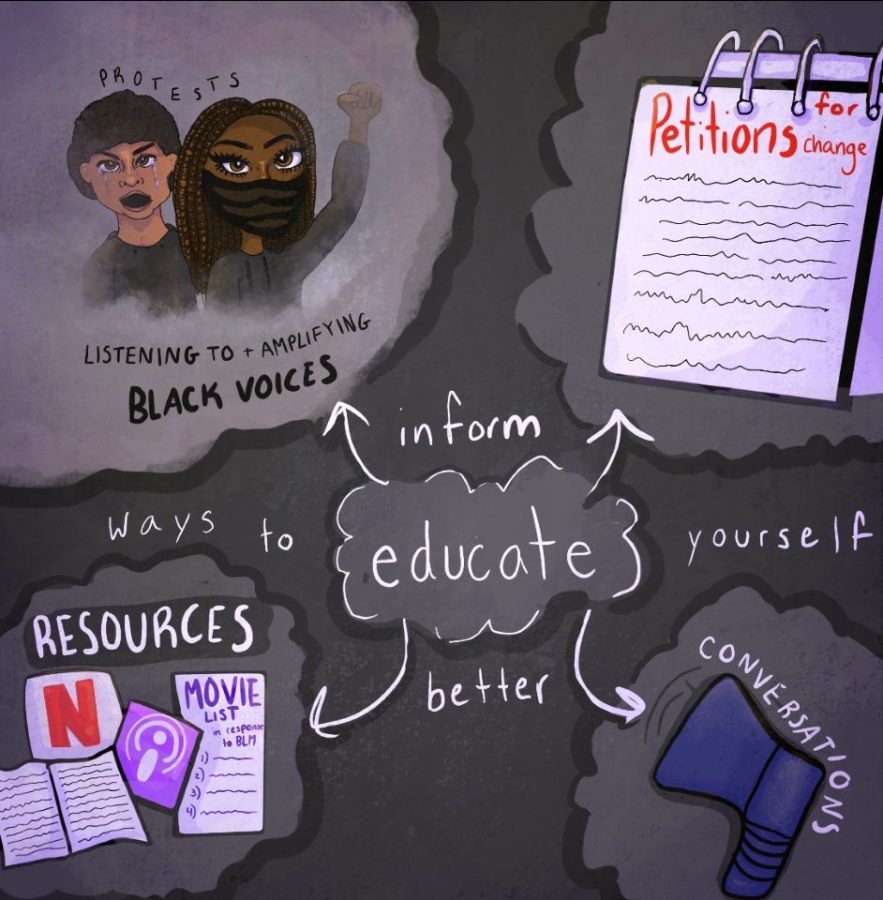 PROTESTS
LISTENING TO + AMPLIFYING
BLACK VOICES
Petitions for
change
inform
ways to educate yourself
better
RESOURCES
N
MOVIE
LIST
in response
to BLM
1)
2)
3)
4)
CONVERSATIONS